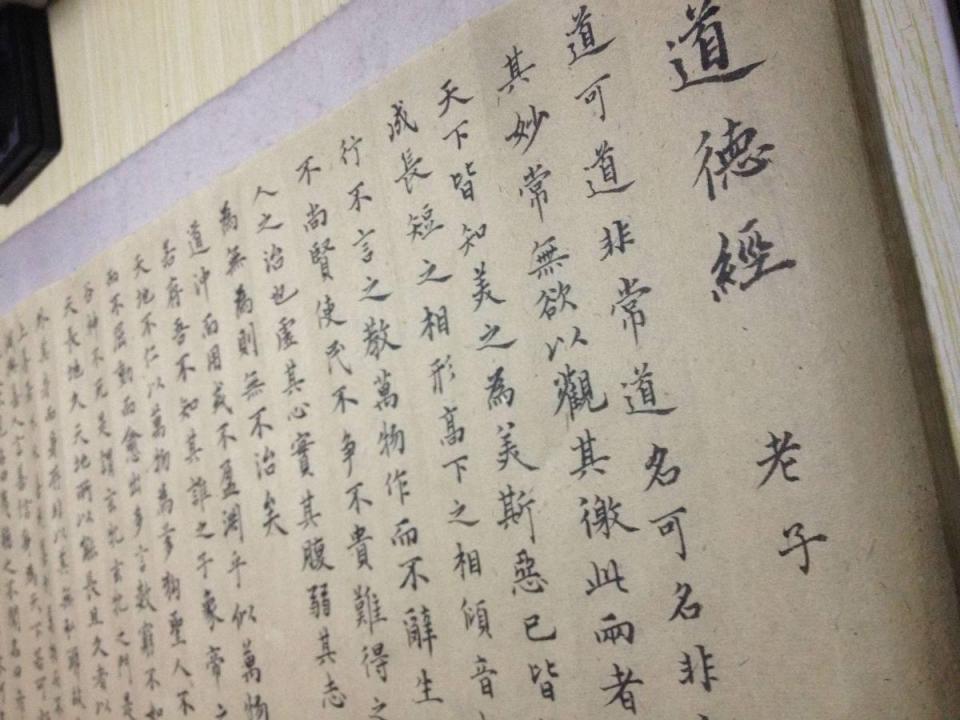 道德經 老子
道可道非常道名可名非
其妙常無欲以觀其徼此兩者
天下皆知美之為美斯惡已皆
成長短之相形高下之相傾音
行不言之教萬物作而不辭生
不尚賢使民不争不貴難得之
人之治也虛其心實其腹弱其志
為無為則無不治矣
道沖而用或不盈淵乎似萬物
若存吾不知其誰之子象帝之
天地不仁以萬物為芻狗聖人不
而不屈動而愈出多言數窮不如
谷神不死是謂玄牝玄牝之門是
天長地久天地所以能長且久者以
外其身而身存非以其無私耶故
上善若水